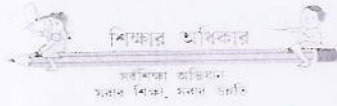 শিক্ষার অধিকার
সর্বশিক্ষা অভিযান
সবার শিক্ষা, সবার উন্নতি